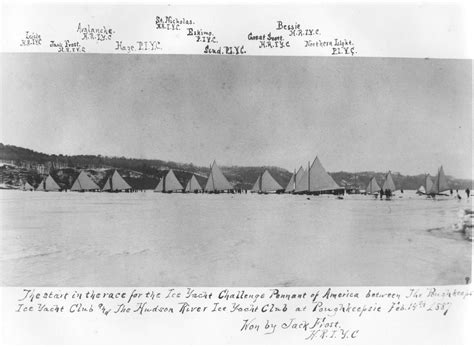 St. Nicholas.
H.R.I.Y.C.
Avalanche.
H.R.I.Y.C.
Bessie
H.R.I.Y.C.
Jack Frost.
H.R.I.Y.C.
Haze. P.I.Y.C.
Eskimo.
P.I.Y.C.
P.I.Y.C.
Great Scott.
H.R.I.Y.C
Northern Light.
P.I.Y.C.
The start in the race for the Ice Yacht Challenge Pennant of America between The Poughkeepsie
Ice Yacht Club and The Hudson River Ice Yacht Club at Poughkeepsie Feb. 14th 1887
Won by Jack Frost.
H.R.I.Y.C